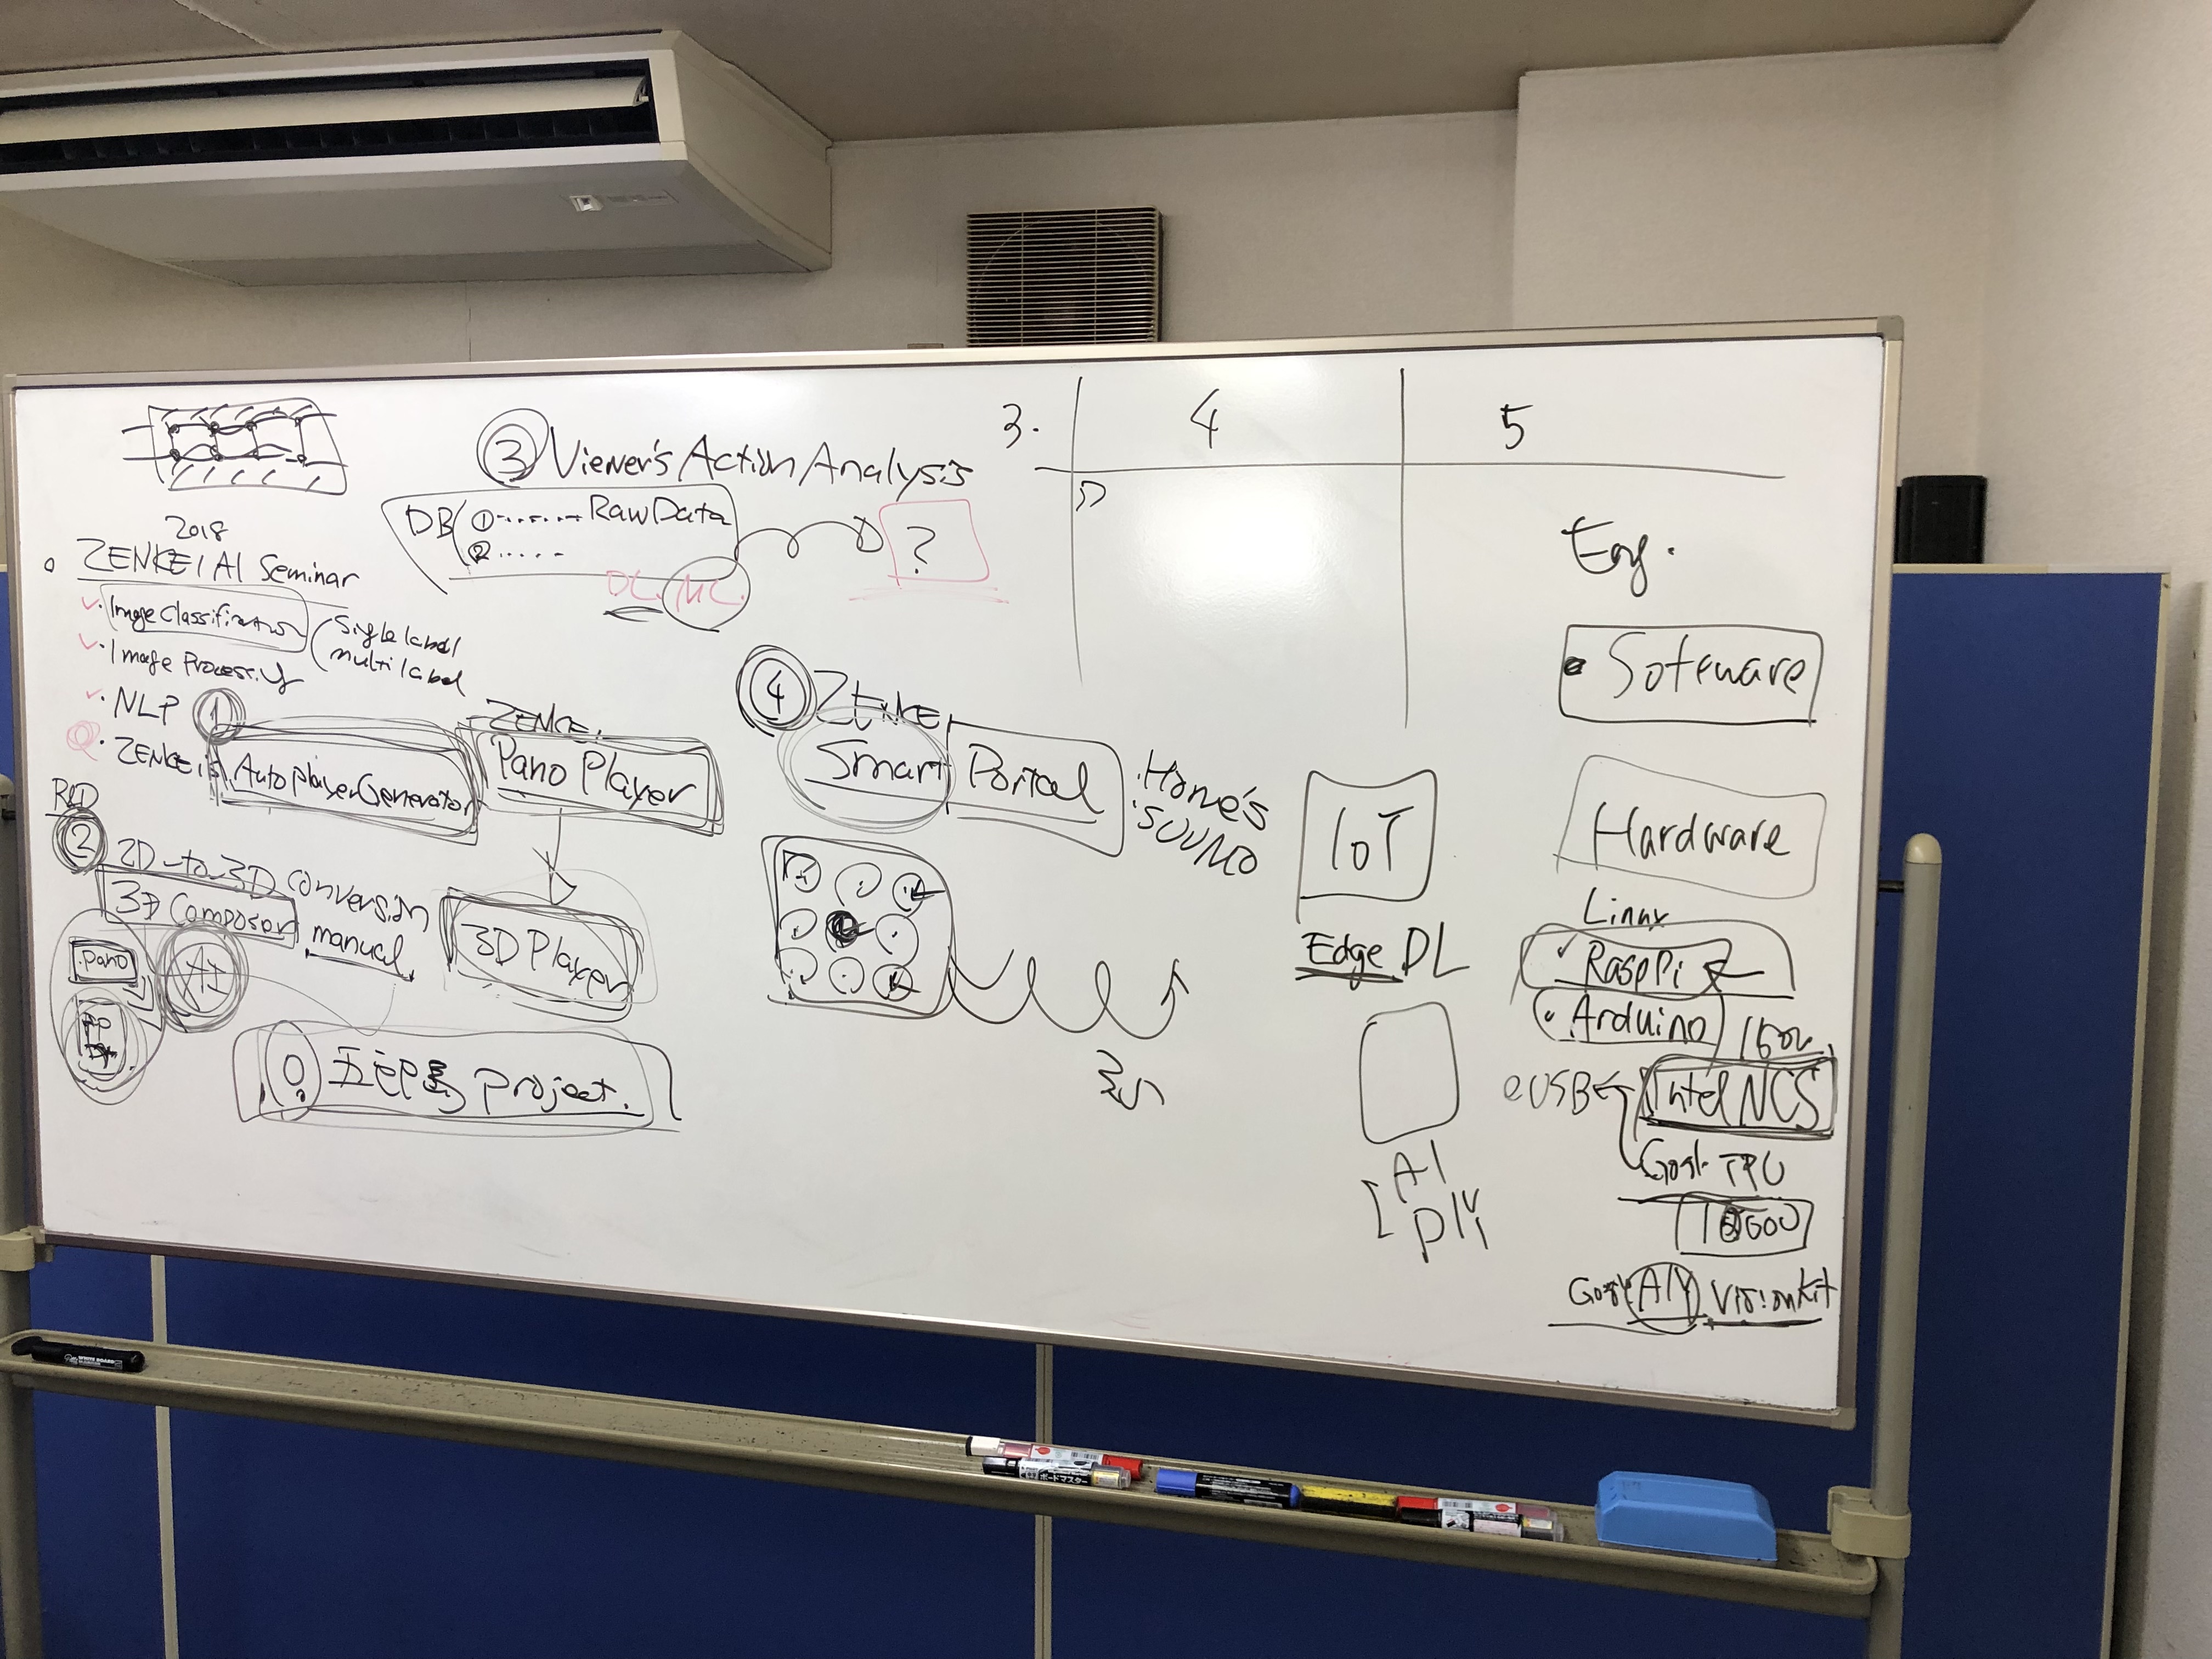 2018
ZENKEI AI Seminar
Image Classification
Single label
multi label
Image Processing
NLP
①
ZENKEI's
Auto Player Generator
ZENKEI
Pano Player
R&D
②
2D-to-3D conversion
3D Composer
manual
Pano
AI
3D Player
project.
③ Viewer's Action Analysis
DB
① Raw Data
②
?
④ ZENKEI
Smart Portal
Home's
SUUMO
3. 4 5
Eng.
Software
IoT
Hardware
Edge DL
Linux
RaspPi
Arduino
Intel NCS
TPU
AI
Div
AIY VisionKit